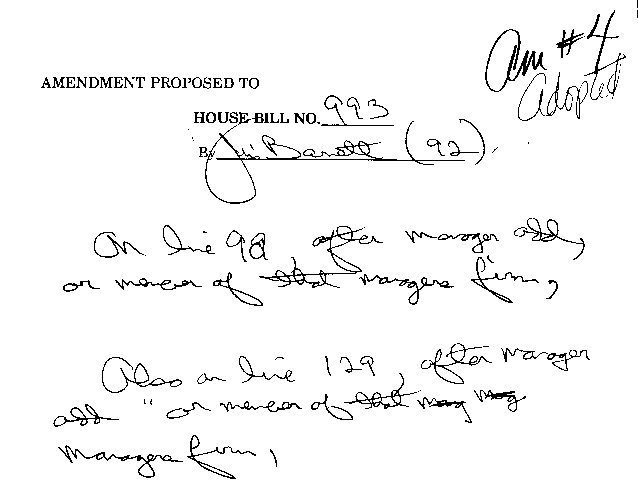 Am #4
Adopted
AMENDMENT PROPOSED TO
HOUSE BILL NO. 993
By Jim Barrett (92)
On line 98, after manager add,
or member of that managers firm,
Also on line 129, after manager
add " or member of that mag mag
managers firm,